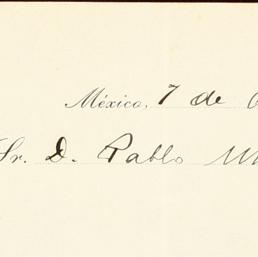 México, 7 de
Sr. D. Pablo